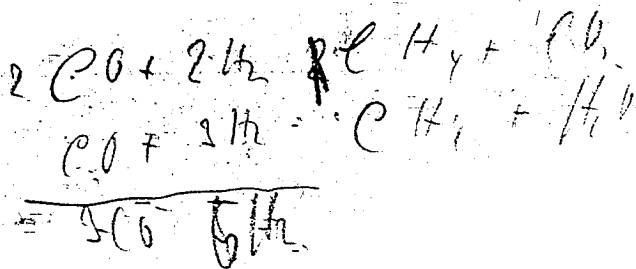 2 CO + 2 H2 = CH4 + CO2
CO + 3 H2 = CH4 + H2O
= 3 CO 5 H2